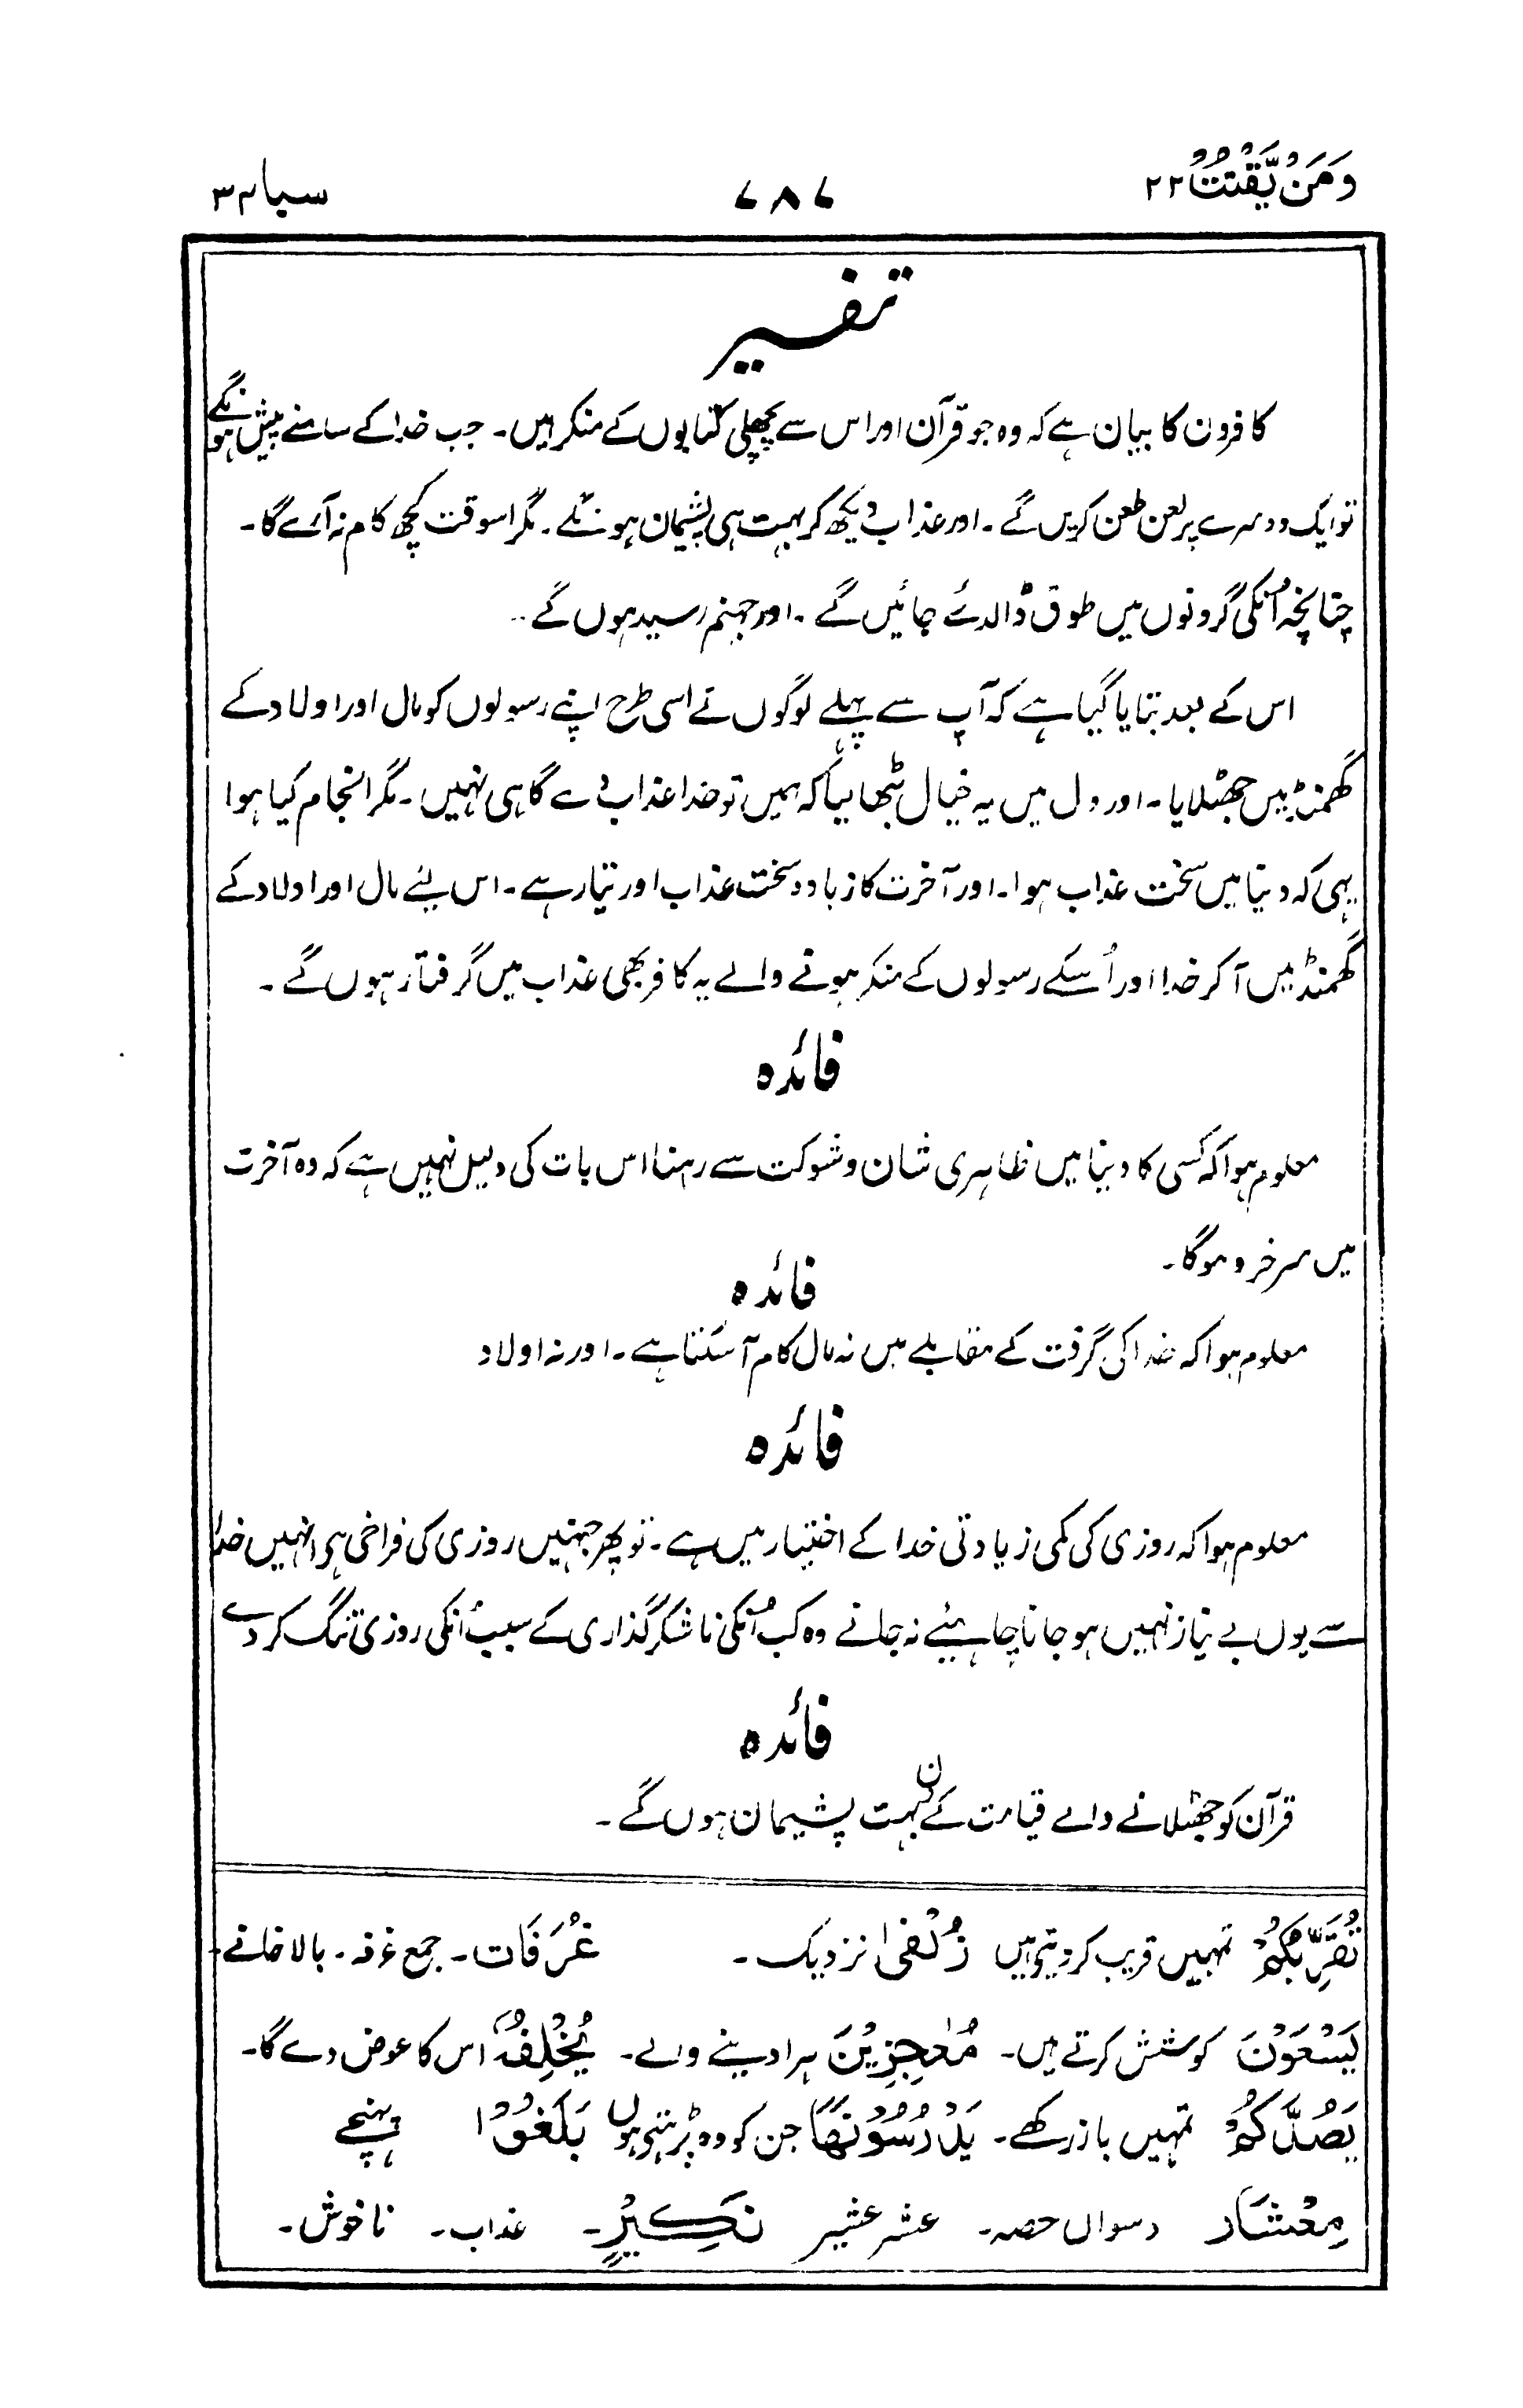 وَمَنْ يَّقْنُتْ ۲۲
۷۸۷
سبا ۳۴
تفسیر
کافرون کا بیان ہے کہ وہ جو قرآن اور اس سے پچھلی کتابوں کے منکر ہیں۔ جب خدا کے سامنے پیش ہونگے
تو ایک دوسرے پر لعن طعن کریں گے۔ اور عذاب دیکھ کر بہت ہی پشیمان ہونگے۔ مگر اسوقت کچھ کام نہ آئے گا۔
چنانچہ اُنکی گردنوں میں طوق ڈالدئے جائیں گے۔ اور جہنم رسید ہوں گے۔
اس کے بعد بتایا گیا ہے کہ آپ سے پہلے لوگوں نے اسی طرح اپنے رسولوں کو مال اور اولاد کے
گھمنڈ میں جھٹلایا۔ اور دل میں یہ خیال بٹھا لیا کہ ہمیں تو خدا عذاب دے گا ہی نہیں۔ مگر انجام کیا ہوا
یہی کہ دنیا میں سخت عذاب ہوا۔ اور آخرت کا زیادہ سخت عذاب اور تیار ہے۔ اس لئے مال اور اولاد کے
گھمنڈ میں آکر خدا اور اُسکے رسولوں کے منکر ہونے والے یہ کافر بھی عذاب میں گرفتار ہوں گے۔
فائدہ
معلوم ہوا کہ کسی کا دنیا میں ظاہری شان و شوکت سے رہنا اس بات کی دلیل نہیں ہے کہ وہ آخرت
میں سرخرو ہوگا۔
فائدہ
معلوم ہوا کہ خدا کی گرفت کے مقابلے میں نہ مال کام آ سکتا ہے۔ اور نہ اولاد
فائدہ
معلوم ہوا کہ روزی کی کمی زیادتی خدا کے اختیار میں ہے۔ تو پھر جنہیں روزی کی فراخی ہو انہیں خدا
سے یوں بے نیاز نہیں ہو جانا چاہئیے نہ جانے وہ کب اُنکی ناشکر گذاری کے سبب اُنکی روزی تنگ کر دے
فائدہ
قرآن کو جھٹلانے والے قیامت کے دن بہت پشیمان ہوں گے۔
تُقَرِّبُكُمْ تمہیں قریب کر دیتی ہیں زُلْفٰى نزدیک۔ غُرَفَات۔ جمع غرفہ۔ بالا خانے۔
يَسْعَوْنَ کوشش کرتے ہیں۔ مُعٰجِزِيْنَ ہرا دینے والے۔ يُخْلِفُهٗ اس کا عوض دے گا۔
يَصُدَّكُمْ تمہیں باز رکھے۔ يَدْرُسُوْنَهَا جن کو وہ پڑہتے ہوں بَلَغُوْا پہنچے
مِعْشَار دسواں حصہ۔ عشر عشیر نَكِيْرٍ۔ عذاب۔ ناخوش۔